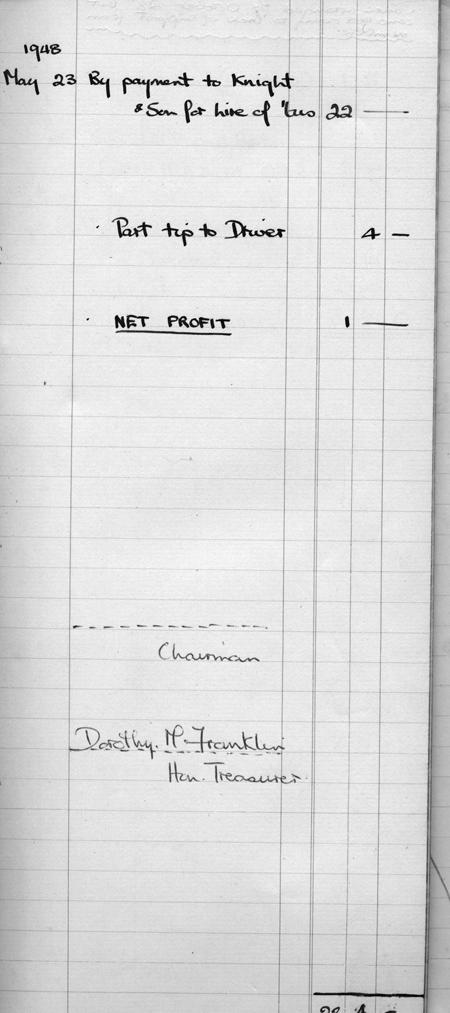 1948
May 23 By payment to Knight
& Son for hire of 'bus 22 —
" Part tip to Driver 4 —
" NET PROFIT 1 —
Chairman
Dorothy. M. Franklin
Hon. Treasurer.